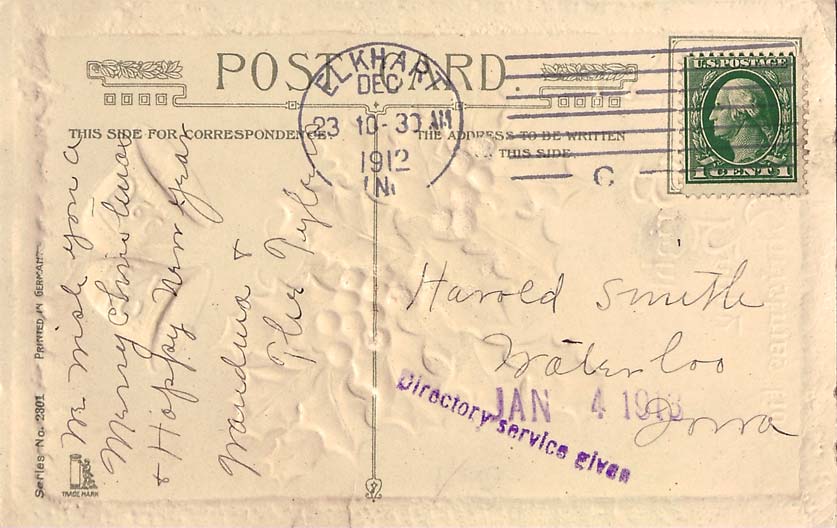 POST CARD.
THIS SIDE FOR CORRESPONDENCE.
THE ADDRESS TO BE WRITTEN
ON THIS SIDE.
ELKHART
DEC
23 10-30 AM
1912
IND.
C
U.S.POSTAGE
1 CENT 1
We wish you a
Merry Christmas
+ Happy New Year
Grandma +
Tyler
Harold Smith
Waterloo
Iowa
JAN 4 1913
Directory service given
Series No. 2301 — PRINTED IN GERMANY.
TRADE MARK